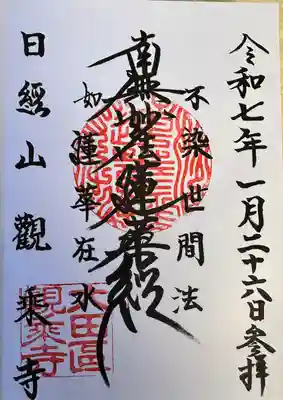 令和七年一月二十六日参拝
不染世間法
南無妙法蓮華経
如蓮華在水
日經山觀乗寺
大田区
観乗寺